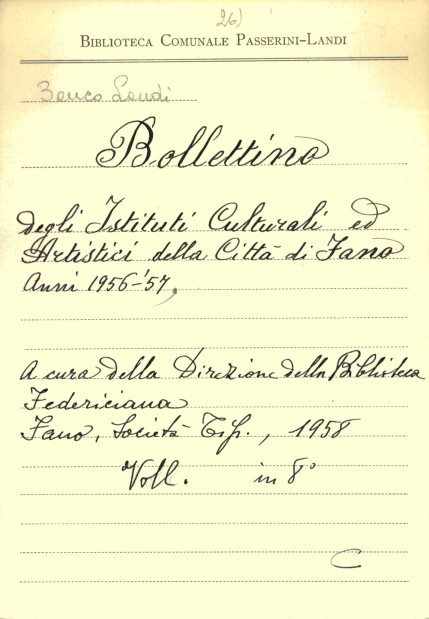 26)
BIBLIOTECA COMUNALE PASSERINI-LANDI
Banco Landi
Bollettino
degli Istituti Culturali ed
Artistici della Città di Fano
Anni 1956-'57,
A cura della Direzione della Biblioteca
Federiciana
Fano, Società Tip., 1958
Voll. in 8°
C